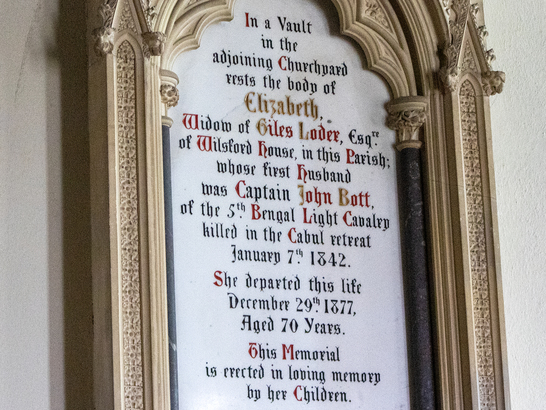 In a Vault
in the
adjoining Churchyard
rests the body of
Elizabeth,
Widow of Giles Loder, Esqre.
of Wilsford House, in this Parish;
whose first Husband
was Captain John Bott,
of the 5th Bengal Light Cavalry
killed in the Cabul retreat
January 7th 1842.
She departed this life
December 29th 1877,
Aged 70 Years.
This Memorial
is erected in loving memory
by her Children.